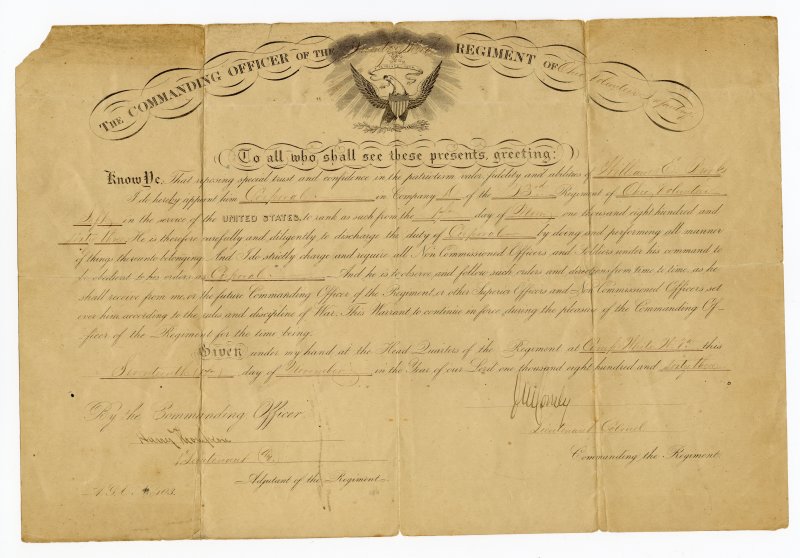 THE COMMANDING OFFICER OF THE REGIMENT OF Ohio Volunteer Infantry
To all who shall see these presents, greeting:
Know Ye, That reposing special trust and confidence in the patriotism, valor, fidelity and abilities of William E.
I do hereby appoint him Corporal in Company of the Regiment of Ohio Volunteer
in the service of the UNITED STATES, to rank as such from the day of one thousand eight hundred and
He is therefore carefully and diligently to discharge the duty of Corporal by doing and performing all manner
of things thereunto belonging. And I do strictly charge and require all Non Commissioned Officers and Soldiers under his command to
be obedient to his orders as Corporal And he is to observe and follow such orders and directions from time to time, as he
shall receive from me, or the future Commanding Officer of the Regiment, or other Superior Officers and Non Commissioned Officers set
over him, according to the rules and discipline of War. This Warrant to continue in force during the pleasure of the Commanding Of-
ficer of the Regiment for the time being.
Given under my hand at the Head Quarters of the Regiment at Camp White W. Va this
day of November in the Year of our Lord one thousand eight hundred and sixty three
By the Commanding Officer.
Lieutenant Colonel
Harry Thompson
Lieutenant &
Commanding the Regiment.
Adjutant of the Regiment.
A.G.O. No. 103.